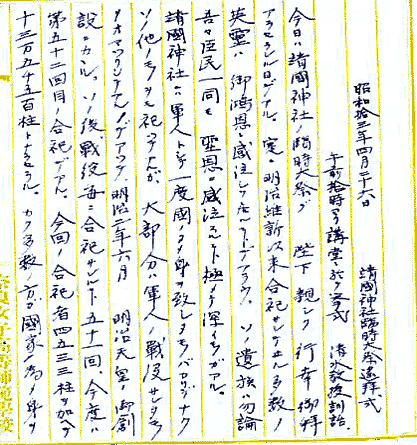 昭和拾三年四月二十六日　靖國神社臨時大祭遙拝式
午前拾時ヨリ講堂ニ於テ挙式　清水教授訓話.
今日ハ靖國神社ノ臨時大祭ガ　陛下親シク行幸御拝
アラセラレル日デアル。実ニ明治維新以来合祀サレタル多数ノ
英霊ハ御鴻恩ニ感泣シテ居ルコトデアラウ。ソノ遺族ハ勿論
吾々臣民一同モ聖恩ニ感泣スルコト極メテ深イノデアル。
靖國神社ハ軍人トシテ一度國ノタメ身ヲ致シタモノバカリデナク
ソノ他ノモノヲモ祀ラレテアルガ、大部分ハ軍人ノ戦没サレタモノ
ヲオマツリシテアルノデアツテ、明治二年六月　明治天皇ノ御創
設ニカヽル。ソノ後戦役毎ニ合祀サレルコト五十一回、今度ハ
第五十二回目ノ合祀デアル。今回ノ合祀者四五三三柱ヲ加ヘテ
十三万五千五百柱トナラセラル。カク多数ノ方ガ國家ノ為ニ身ヲ
奈良女子高等師範學校